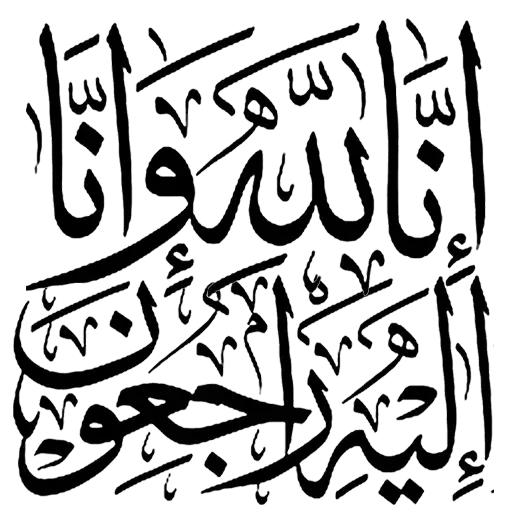 إنَّا لله وَإنَّا
إِليهِ رَاجعون